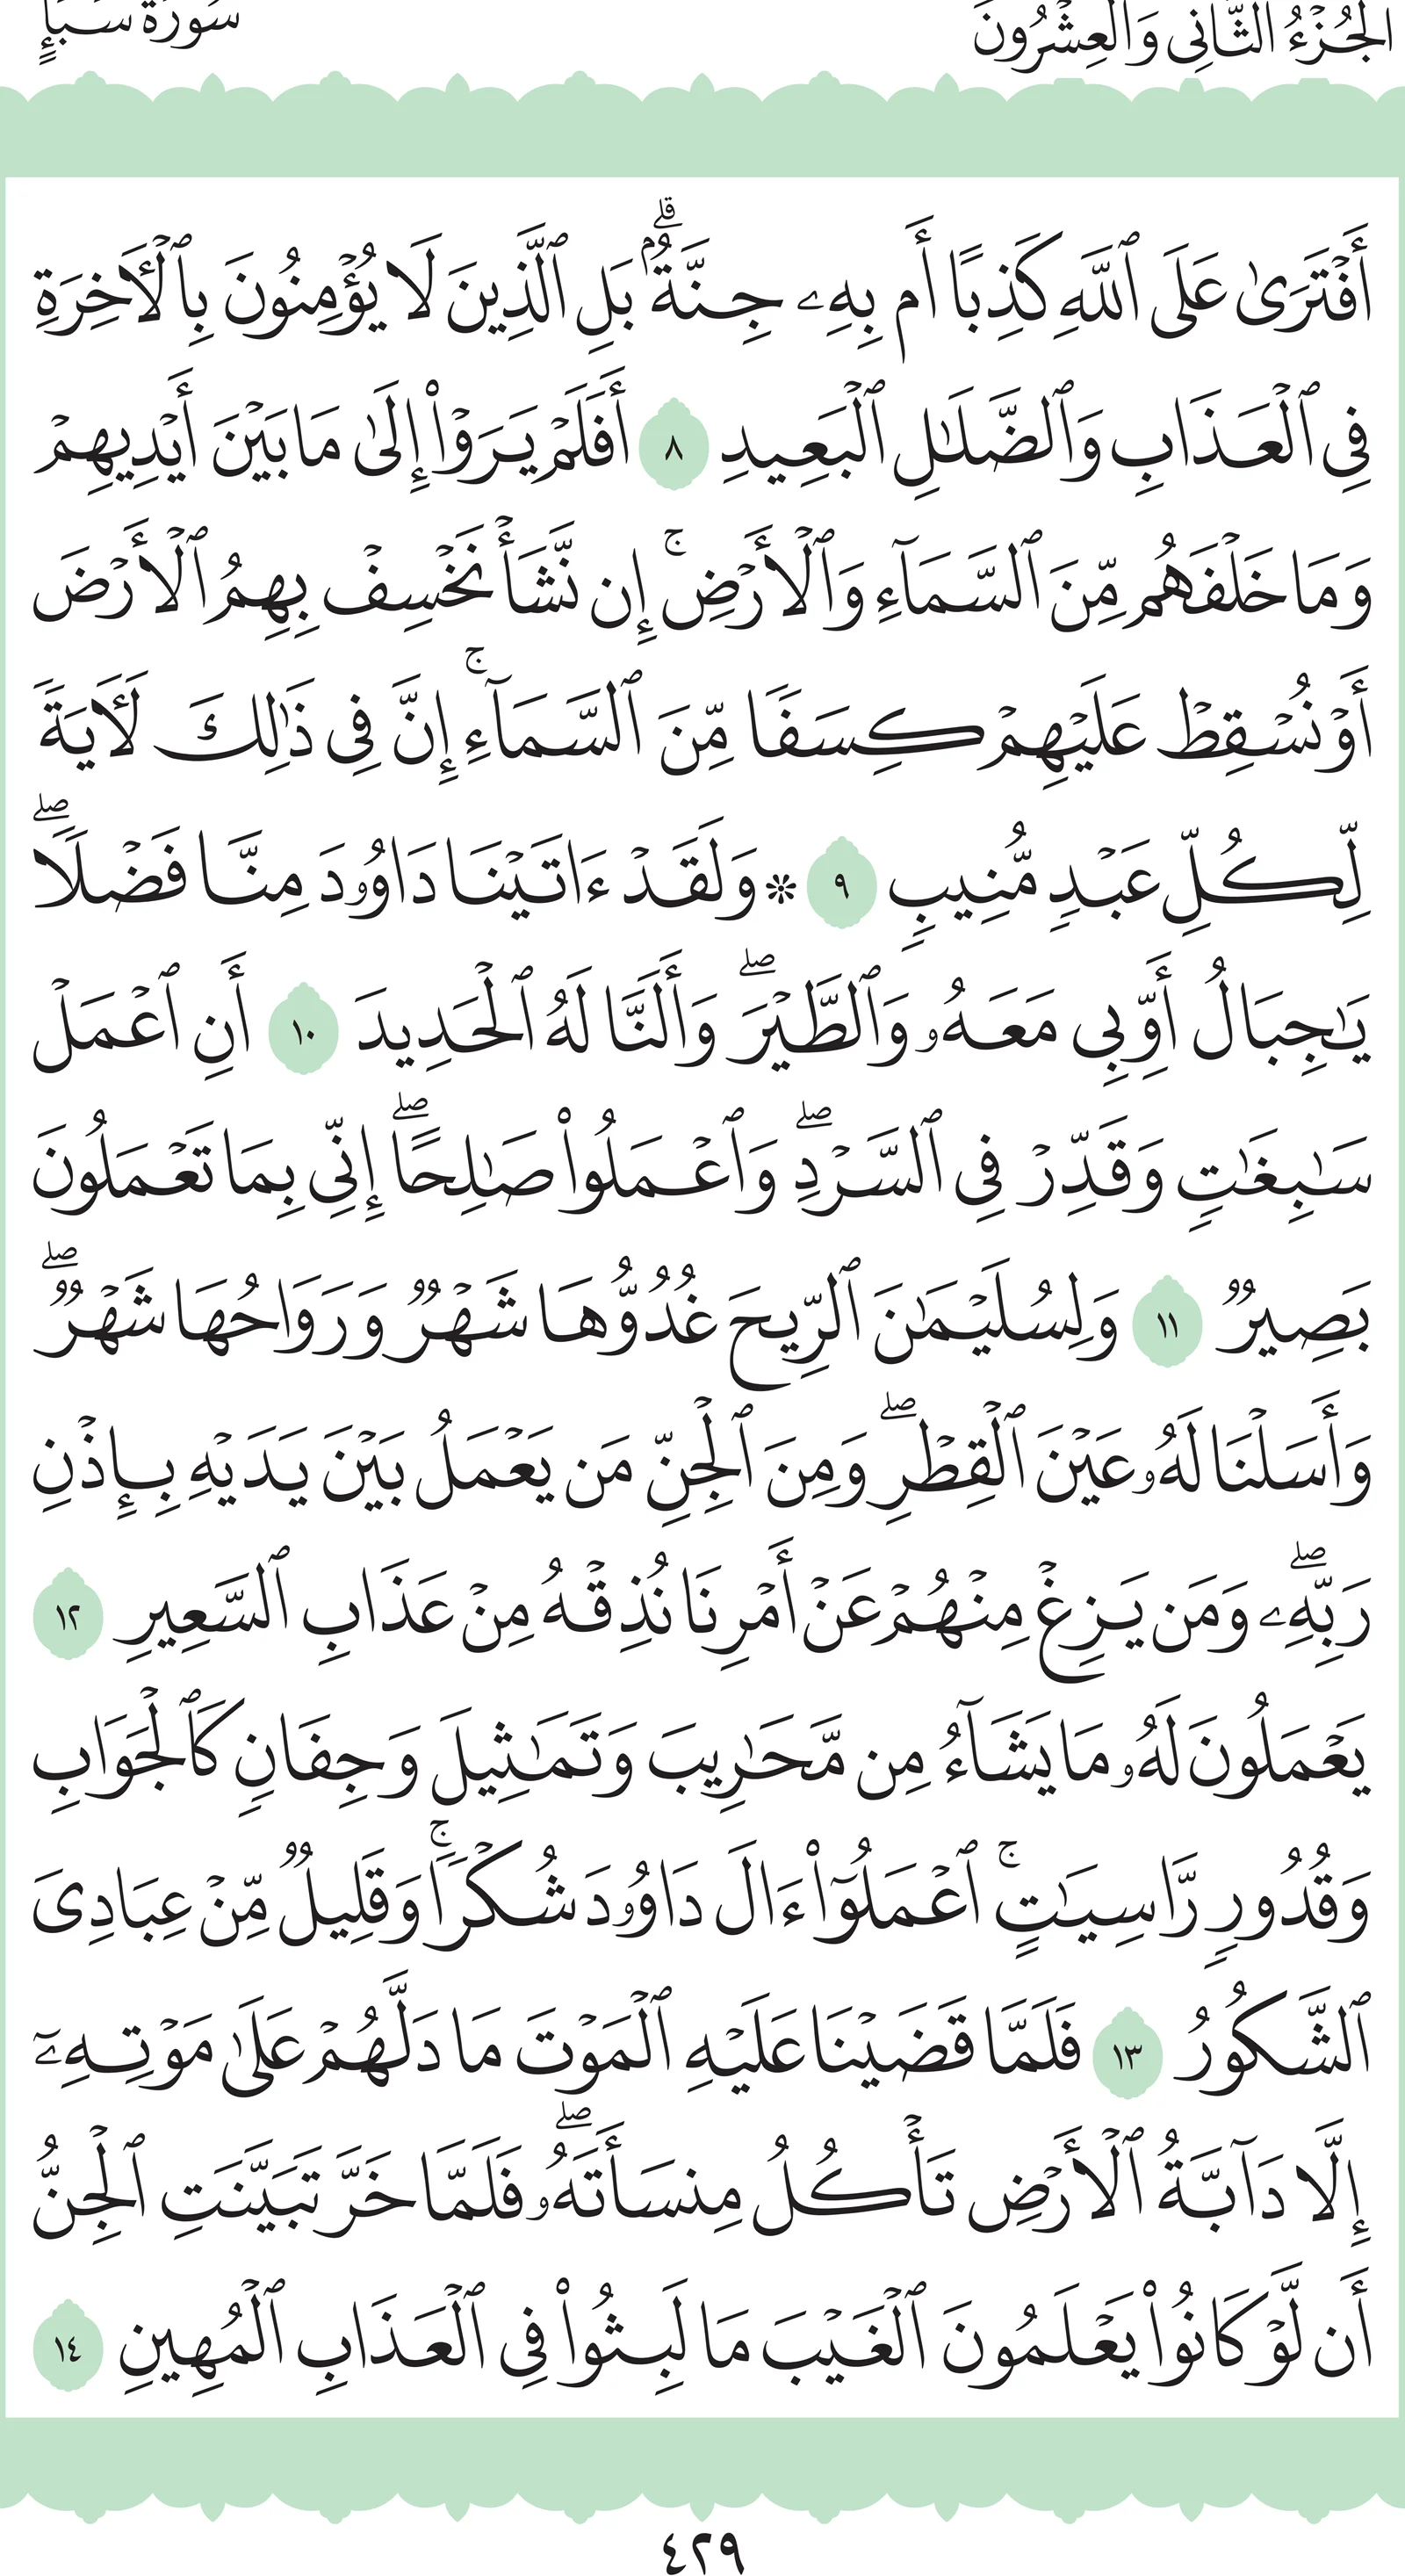 الجُزْءُ الثَّانِي وَالعِشْرُونَ
سُورَةُ سَبَإٍ
أَفۡتَرَىٰ عَلَى ٱللَّهِ كَذِبًا أَم بِهِۦ جِنَّةُۢۗ بَلِ ٱلَّذِينَ لَا يُؤۡمِنُونَ بِٱلۡأٓخِرَةِ
فِي ٱلۡعَذَابِ وَٱلضَّلَٰلِ ٱلۡبَعِيدِ ٨ أَفَلَمۡ يَرَوۡاْ إِلَىٰ مَا بَيۡنَ أَيۡدِيهِمۡ
وَمَا خَلۡفَهُم مِّنَ ٱلسَّمَآءِ وَٱلۡأَرۡضِۚ إِن نَّشَأۡ نَخۡسِفۡ بِهِمُ ٱلۡأَرۡضَ
أَوۡ نُسۡقِطۡ عَلَيۡهِمۡ كِسَفٗا مِّنَ ٱلسَّمَآءِۚ إِنَّ فِي ذَٰلِكَ لَأٓيَةٗ
لِّكُلِّ عَبۡدٖ مُّنِيبٖ ٩ ۞ وَلَقَدۡ ءَاتَيۡنَا دَاوُۥدَ مِنَّا فَضۡلٗاۖ
يَٰجِبَالُ أَوِّبِي مَعَهُۥ وَٱلطَّيۡرَۖ وَأَلَنَّا لَهُ ٱلۡحَدِيدَ ١٠ أَنِ ٱعۡمَلۡ
سَٰبِغَٰتٖ وَقَدِّرۡ فِي ٱلسَّرۡدِۖ وَٱعۡمَلُواْ صَٰلِحًاۖ إِنِّي بِمَا تَعۡمَلُونَ
بَصِيرٞ ١١ وَلِسُلَيۡمَٰنَ ٱلرِّيحَ غُدُوُّهَا شَهۡرٞ وَرَوَاحُهَا شَهۡرٞۖ
وَأَسَلۡنَا لَهُۥ عَيۡنَ ٱلۡقِطۡرِۖ وَمِنَ ٱلۡجِنِّ مَن يَعۡمَلُ بَيۡنَ يَدَيۡهِ بِإِذۡنِ
رَبِّهِۦۖ وَمَن يَزِغۡ مِنۡهُمۡ عَنۡ أَمۡرِنَا نُذِقۡهُ مِنۡ عَذَابِ ٱلسَّعِيرِ ١٢
يَعۡمَلُونَ لَهُۥ مَا يَشَآءُ مِن مَّحَٰرِيبَ وَتَمَٰثِيلَ وَجِفَانٖ كَٱلۡجَوَابِ
وَقُدُورٖ رَّاسِيَٰتٍۚ ٱعۡمَلُوٓاْ ءَالَ دَاوُۥدَ شُكۡرٗاۚ وَقَلِيلٞ مِّنۡ عِبَادِيَ
ٱلشَّكُورُ ١٣ فَلَمَّا قَضَيۡنَا عَلَيۡهِ ٱلۡمَوۡتَ مَا دَلَّهُمۡ عَلَىٰ مَوۡتِهِۦٓ
إِلَّا دَآبَّةُ ٱلۡأَرۡضِ تَأۡكُلُ مِنسَأَتَهُۥۖ فَلَمَّا خَرَّ تَبَيَّنَتِ ٱلۡجِنُّ
أَن لَّوۡ كَانُواْ يَعۡلَمُونَ ٱلۡغَيۡبَ مَا لَبِثُواْ فِي ٱلۡعَذَابِ ٱلۡمُهِينِ ١٤
٤٢٩